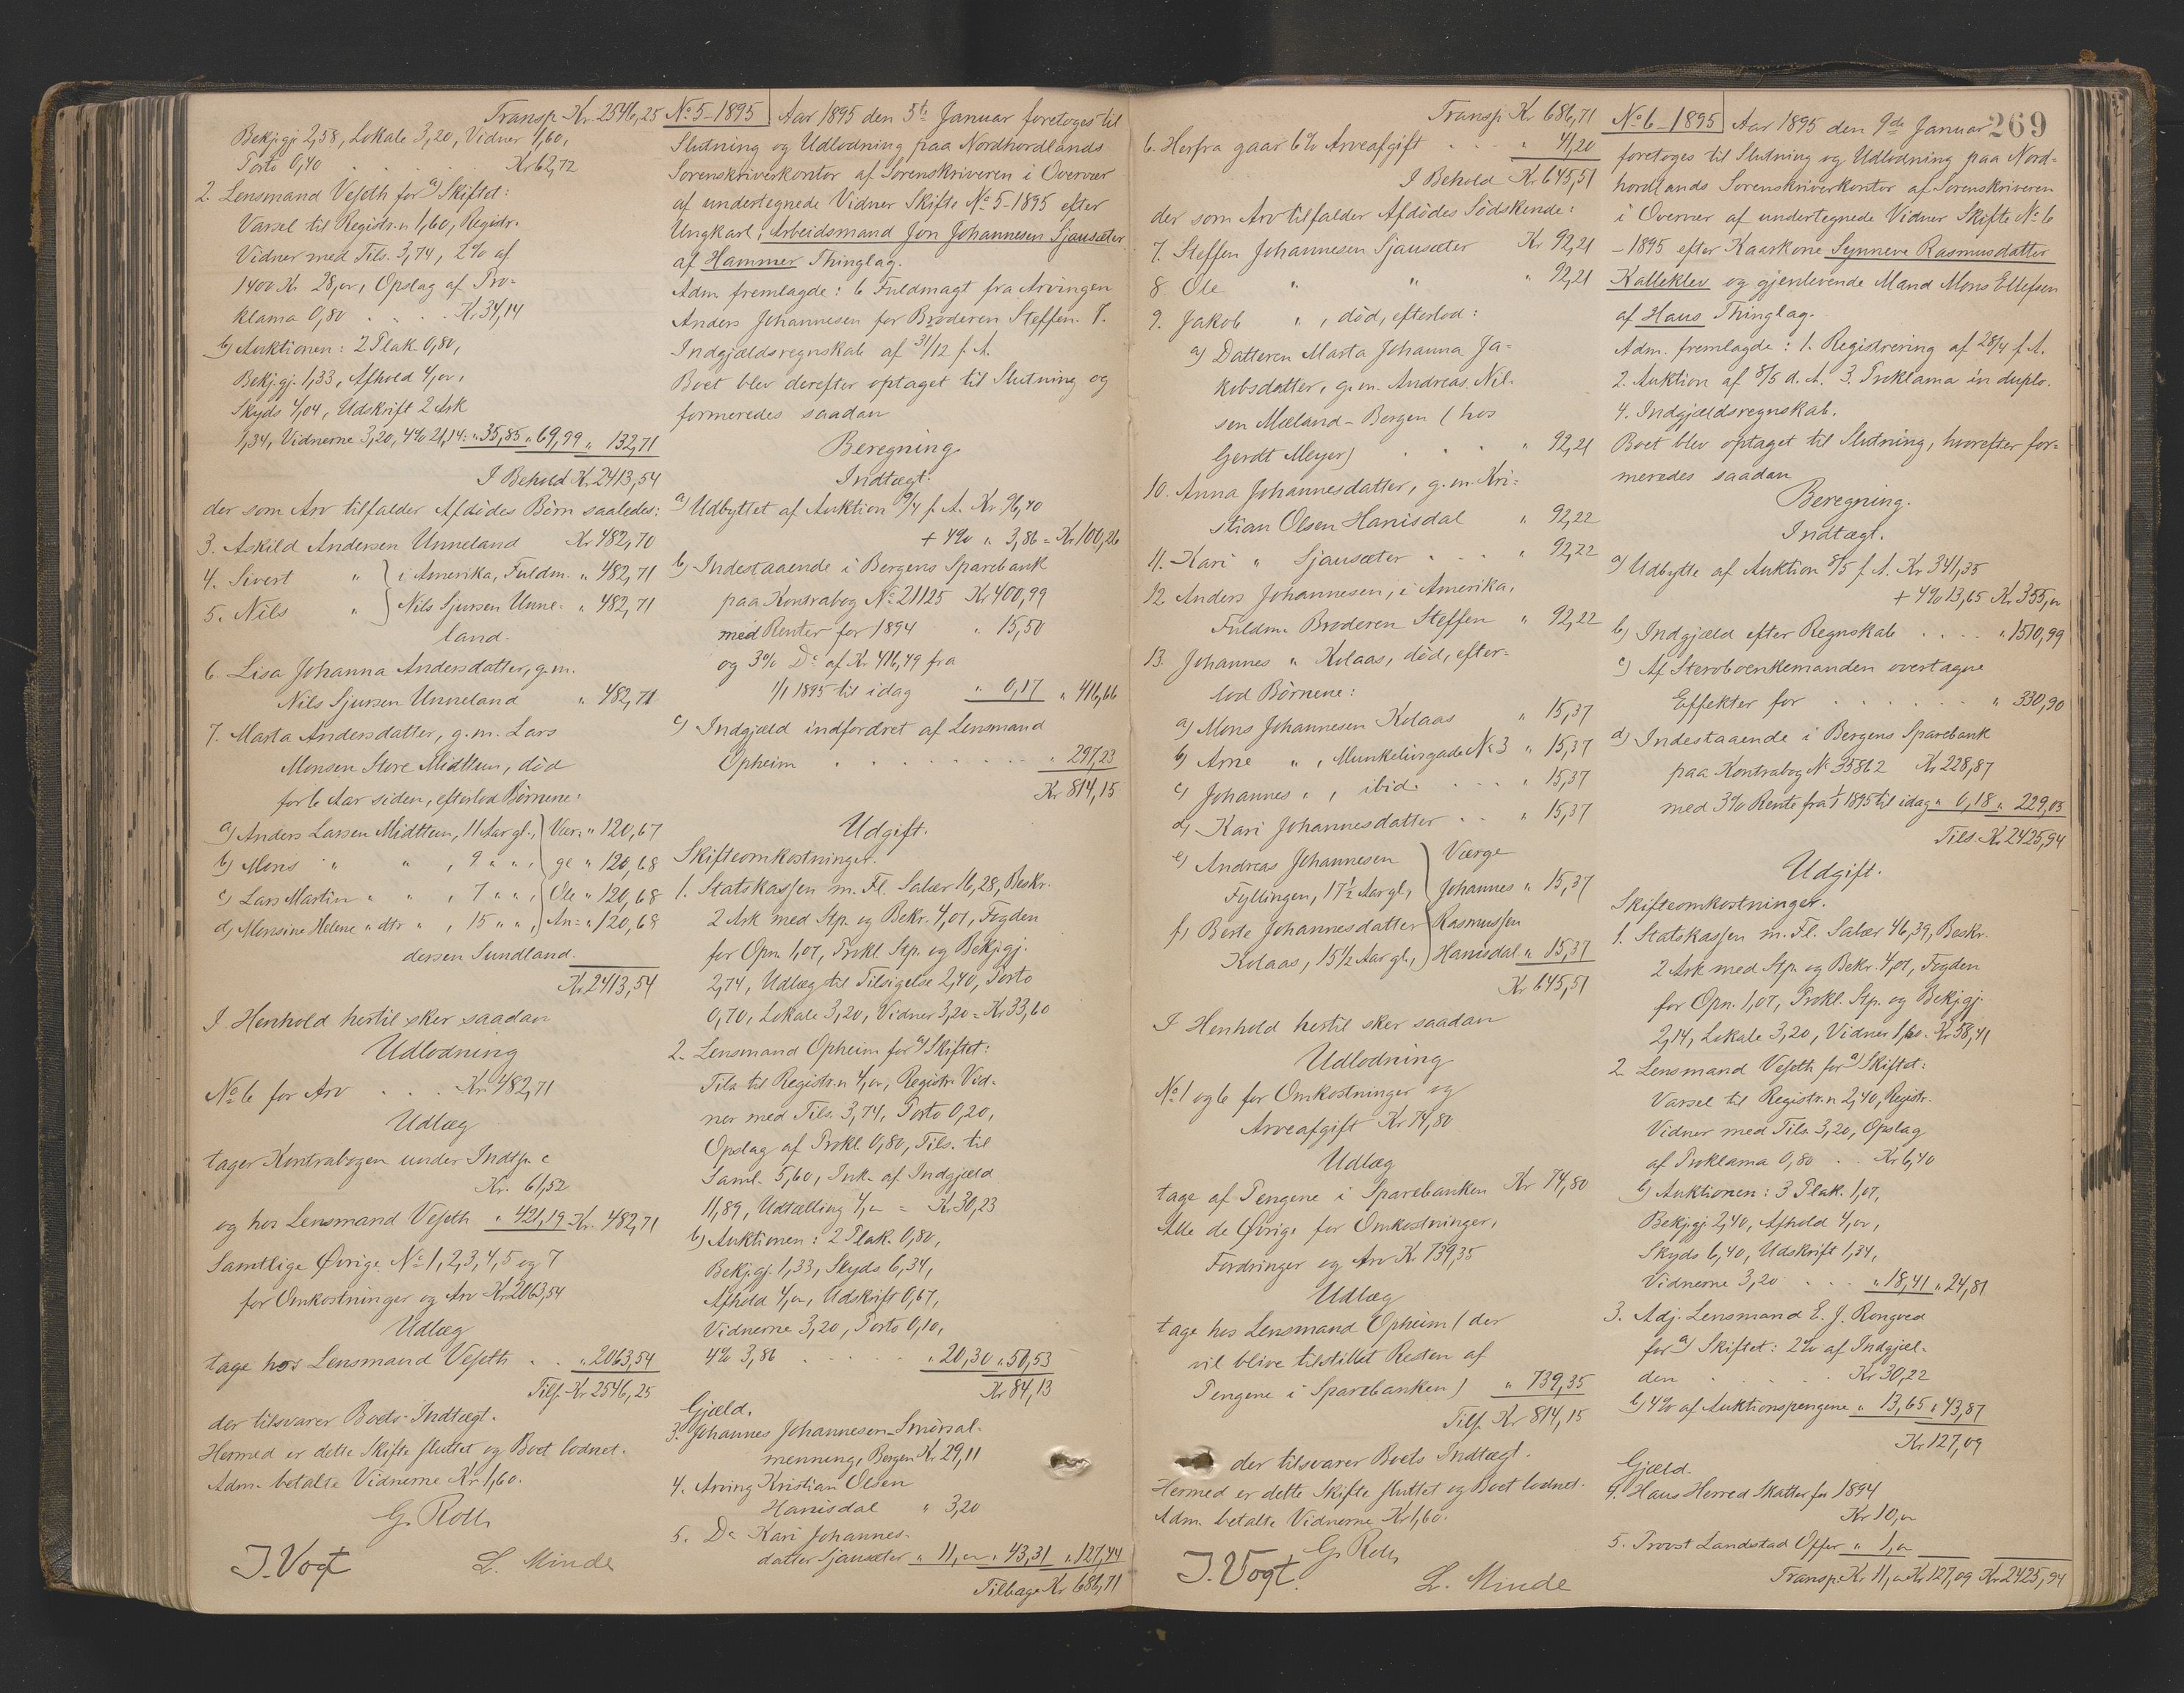 Transp. Kr. 2546,25
Bekj.gj. 2,58, Lokale 3,20, Vidner 1,60,
Porto 0,40 . . . Kr 62,72
2. Lensmand Vefeth for a) Skiftet:
Varsel til Registr.n 1,60, Registr.
Vidner med Tils. 3,74, 2% af
1400 Kr 28,00, Opslag af Pro-
klama 0,80 . . . Kr 34,14
b) Auktionen: 2 Plak. 0,80,
Bekj.gj. 1,33, Afhold 4,00,
Skyds 4,04, Udskrift 2 Ark
1,34, Vidnerne 3,20, 4% 21,14 = " 35,85 " 69,99 " 132,71
I Behold Kr. 2413,54
der som Arv tilfalder Afdødes Børn saaledes:
3. Askild Andersen Unneland Kr 482,70
4. Sivert " } i Amerika, Fuldm. " 482,71
5. Nils " } Nils Sjursen Unne- " 482,71
land.
6. Lisa Johanna Andersdatter, g.m.
Nils Sjursen Unneland " 482,71
7. Marta Andersdatter, g.m. Lars
Monsen Store Midttun, død
for 6 Aar siden, efterlod Børnene:
a) Anders Larsen Midttun, 11 Aar gl., } Vær- " 120,67
b) Mons " " , 9 " " , } ge " 120,68
c) Lars Martin " " , 7 " " , } Ole " 120,68
d) Monsine Helene " dtr " , 15 " " , } An- " 120,68
dersen Sundland.
Kr. 2413,54
I Henhold hertil sker saadan
Udlodning
No 6 for Arv . . . Kr. 482,71
Udlæg
tager Kontrabogen under Indtgt. c
Kr. 61,52
og hos Lensmand Vefeth " 421,19 Kr. 482,71
Samtlige Øvrige No 1, 2, 3, 4, 5 og 7
for Omkostninger og Arv Kr. 2063,54
Udlæg
tage hos Lensmand Vefeth . . " 2063,54
Tils. Kr 2546,25
der tilsvarer Boets Indtægt.
Hermed er dette Skifte sluttet og Boet lodnet.
Adm. betalte Vidnerne Kr. 1,60.
G. Roll
J. Vogt L. Minde
No 5-1895 Aar 1895 den 5te Januar foretoges til
Slutning og Udlodning paa Nordhordlands
Sorenskriverkontor af Sorenskriveren i Overvær
af undertegnede Vidner Skifte No 5-1895 efter
Ungkarl, Arbeidsmand Jon Johannesen Sjausæter
af Hammer Thinglag.
Adm. fremlagde: 6 Fuldmagt fra Arvingen
Anders Johannesen for Broderen Steffen. 7.
Indgjældsregnskab af 31/12 f. A.
Boet blev derefter optaget til Slutning og
formeredes saadan
Beregning.
Indtægt.
a) Udbyttet af Auktion 9/4 f. A. Kr 96,40
+ 4% " 3,86 = Kr 100,26
b) Indestaaende i Bergens Sparebank
paa Kontrabog No 21125 Kr 400,99
med Renter for 1894 " 15,50
og 3% Do af Kr. 416,49 fra
1/1 1895 til idag " 0,17 " 416,66
c) Indgjæld indfordret af Lensmand
Opheim . . . " 297,23
Kr 814,15
Udgift.
Skifteomkostninger.
1. Statskassen m. Fl. Salær 16,28, Beskr.
2 Ark med Stp. og Bekr. 4,07, Fogden
for Opn. 1,07, Prokl. Stp. og Bekj.gj.
2,74, Udlæg til Tilsigelse 2,40, Porto
0,70, Lokale 3,20, Vidner 3,20 = Kr 33,60
2. Lensmand Opheim for a) Skiftet:
Tils. til Registr.n 4,00, Registr. Vid-
ner med Tils. 3,74, Porto 0,20,
Opslag af Prokl. 0,80, Tils. til
Saml. 5,60, Ink. af Indgjæld
11,89, Udtælling 4,00 = Kr 30,23
b) Auktionen: 2 Plak. 0,80,
Bekj.gj. 1,33, Skyds 6,34,
Afhold 4,00, Udskrift 0,67,
Vidnerne 3,20, Porto 0,10,
4% 3,86 . . . " 20,30 " 50,53
Kr 84,13
Gjæld.
3. Johannes Johannesen Smørsal-
menning, Bergen Kr. 29,11
4. Arving Kristian Olsen
Hanisdal " 3,20
5. Do Kari Johannes-
datter Sjausæter " 11,00 " 43,31 " 127,44
Tilbage Kr 686,71
Transp. Kr 686,71
6. Herfra gaar 6% Arveafgift . . . " 41,20
I Behold Kr 645,51
der som Arv tilfalder Afdødes Sødskende:
7. Steffen Johannesen Sjausæter Kr 92,21
8 Ole " " " 92,21
9. Jakob " , død, efterlod:
a) Datteren Marta Johanna Ja-
kobsdatter, g.m. Andreas Nil-
sen Mæland - Bergen (hos
Gerdt Meyer) . . . " 92,21
10. Anna Johannesdatter, g.m. Kri-
stian Olsen Hanisdal " 92,22
11. Kari " Sjausæter . . . " 92,22
12. Anders Johannesen, i Amerika,
Fuldm. Broderen Steffen " 92,22
13. Johannes " Kolaas, død, efter-
lod Børnene:
a) Mons Johannesen Kolaas " 15,37
b) Arne " , Munkelivsgade No 3 " 15,37
c) Johannes " , ibid. . . . " 15,37
d) Kari Johannesdatter . . " 15,37
e) Andreas Johannesen } Værge
Fyllingen, 17½ Aar gl., } Johannes " 15,37
f) Berte Johannesdatter } Rasmussen
Kolaas, 15½ Aar gl., } Hanisdal " 15,37
Kr 645,51
I Henhold hertil sker saadan
Udlodning
No 1 og 6 for Omkostninger og
Arveafgift Kr 74,80
Udlæg
tage af Pengene i Sparebanken Kr 74,80
Alle de Øvrige for Omkostninger,
Fordringer og Arv Kr 739,35
Udlæg
tage hos Lensmand Opheim (der
vil blive tilstillet Resten af
Pengene i Sparebanken) " 739,35
Tils. Kr 814,15
der tilsvarer Boets Indtægt.
Hermed er dette Skifte sluttet og Boet lodnet.
Adm. betalte Vidnerne Kr 1,60.
G. Roll
J. Vogt. L. Minde
269
No 6-1895 Aar 1895 den 9de Januar
foretoges til Slutning og Udlodning paa Nord-
hordlands Sorenskriverkontor af Sorenskriveren
i Overvær af undertegnede Vidner Skifte No 6
-1895 efter Kaarkone Synneve Rasmusdatter
Kalleklev og gjenlevende Mand Mons Ellefsen
af Haus Thinglag.
Adm. fremlagde: 1. Registrering af 28/4 f. A.
2. Auktion af 8/5 d. A. 3. Proklama in duplo.
4. Indgjældsregnskab.
Boet blev optaget til Slutning, hvorefter for-
meredes saadan
Beregning.
Indtægt.
a) Udbytte af Auktion 8/5 f. A. Kr 341,35
+ 4% 13,65 Kr 355,00
b) Indgjæld efter Regnskab . . . " 1510,99
c) Af Stervboenkemanden overtagne
Effekter for . . . " 330,90
d) Indestaaende i Bergens Sparebank
paa Kontrabog No 35862 Kr 228,87
med 3% Rente fra 1/1 1895 til idag " 0,18 " 229,05
Tils. Kr 2425,94
Udgift.
Skifteomkostninger.
1. Statskassen m. Fl. Salær 46,39, Beskr.
2 Ark med Stp. og Bekr. 4,07, Fogden
for Opn. 1,07, Prokl. Stp. og Bekj.gj.
2,14, Lokale 3,20, Vidner 1,60 - Kr 58,41
2. Lensmand Vefeth for a) Skiftet:
Varsel til Registr.n 2,40, Registr.
Vidner med Tils. 3,20, Opslag
af Proklama 0,80 . . Kr 6,40
b) Auktionen: 3 Plak. 1,07,
Bekj.gj 2,40, Afhold 4,00,
Skyds 6,40, Udskrift 1,34,
Vidnerne 3,20 . . . " 18,41 " 24,81
3. Adj. Lensmand E. J. Rongved
for a) Skiftet: 2% af Indgjæl-
den . . . Kr 30,22
b) 4% af Auktionspengene " 13,65 " 43,87
Kr 127,09
Gjæld.
4. Haus Herred Skatter for 1894
Kr 10,00
5. Provst Landstad Offer " 1,00
Transp. Kr 11,00 Kr 127,09 Kr 2425,94